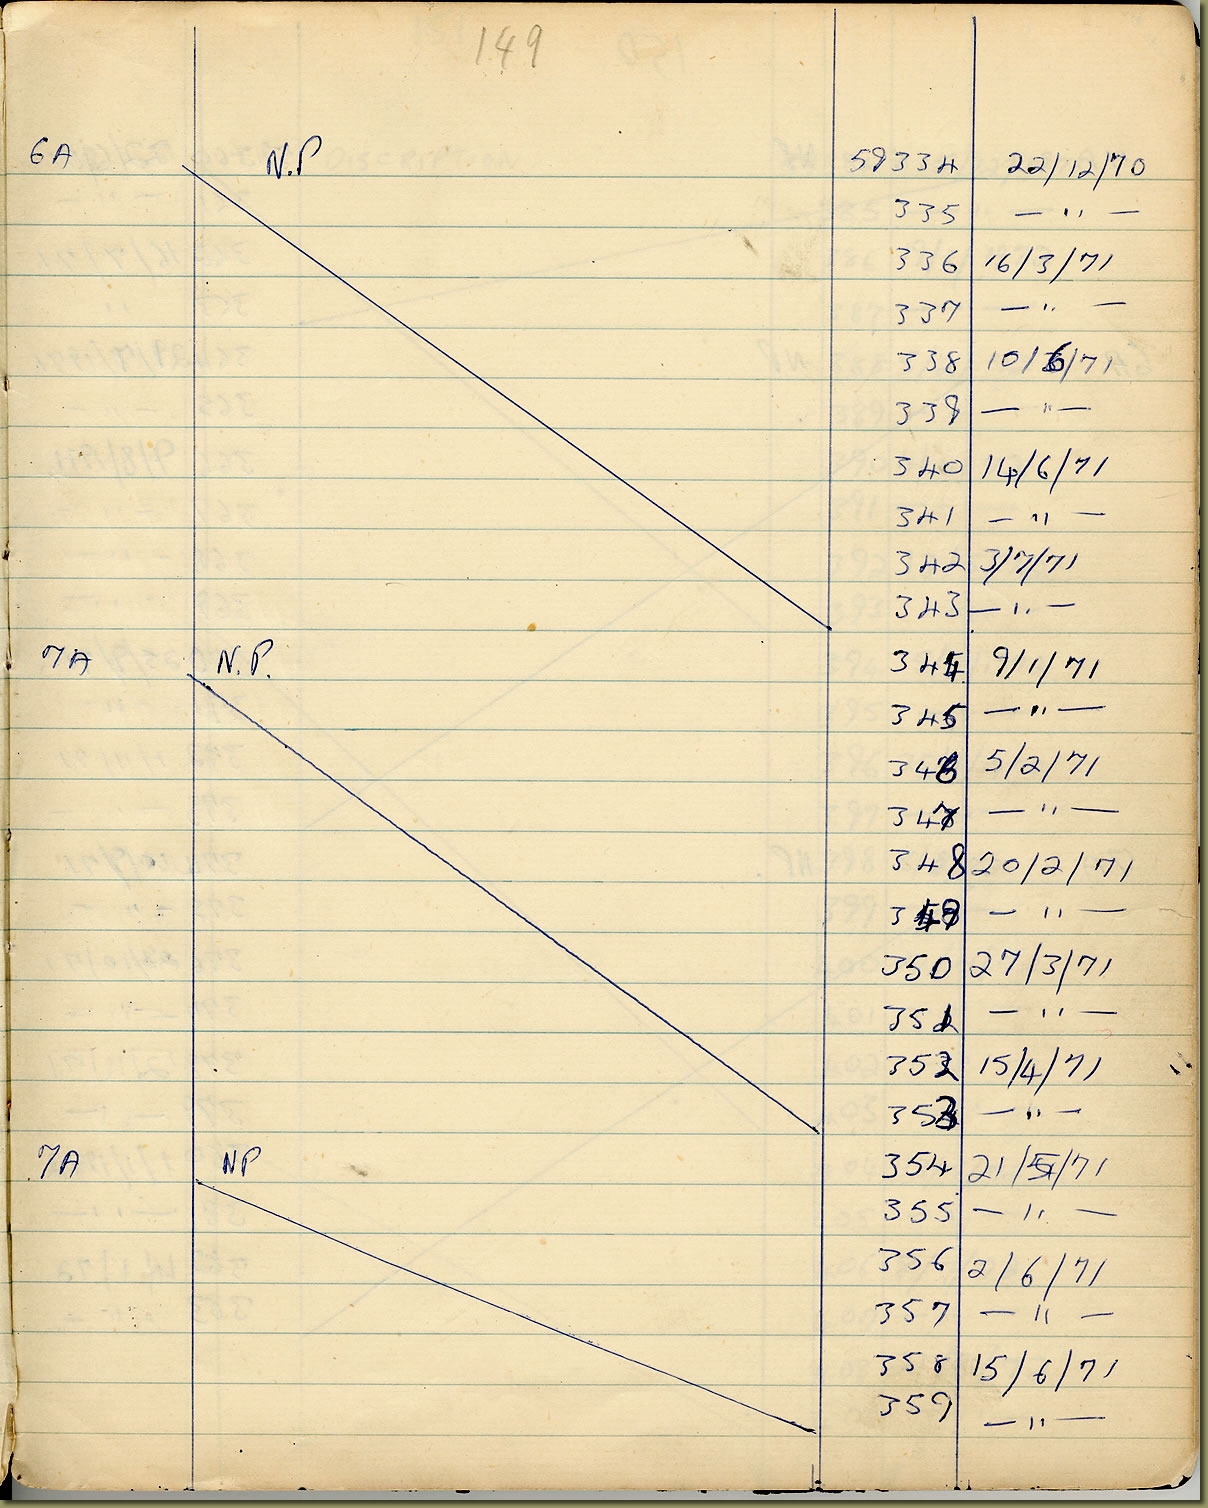 149
6A N.P 59334 22/12/70
335 — " —
336 16/3/71
337 — " —
338 10/6/71
339 — " —
340 14/6/71
341 — " —
342 3/7/71
343 — " —
7A N.P. 344 9/1/71
345 — " —
346 5/2/71
347 — " —
348 20/2/71
349 — " —
350 27/3/71
351 — " —
352 15/4/71
353 — " —
7A NP 354 21/5/71
355 — " —
356 2/6/71
357 — " —
358 15/6/71
359 — " —